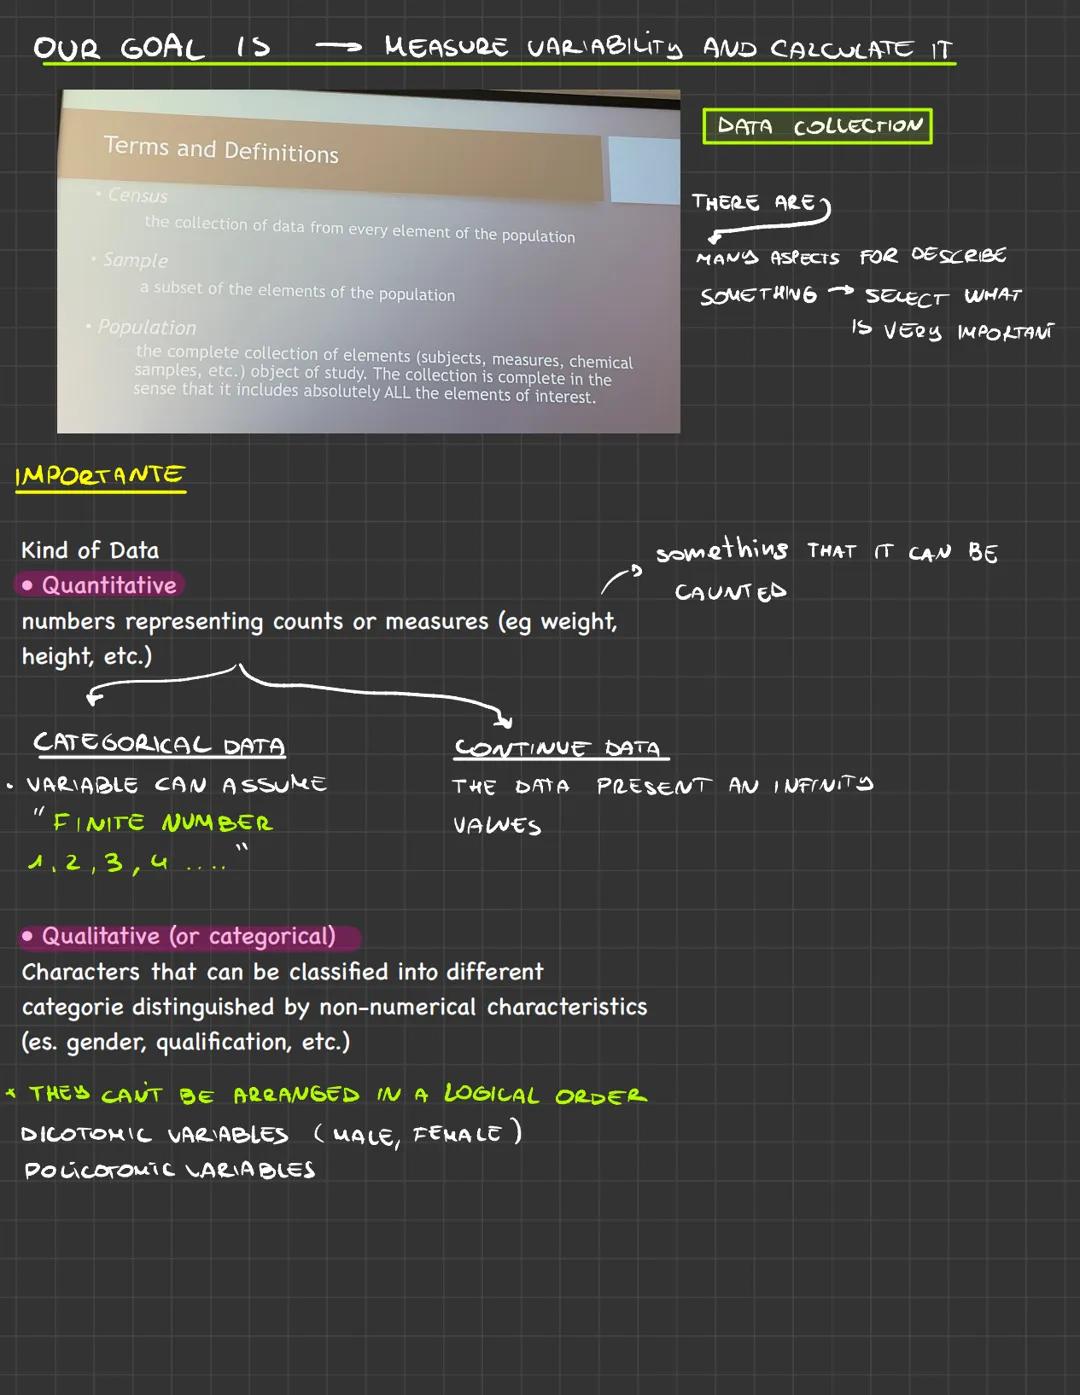 OUR GOAL IS → MEASURE VARIABILITY AND CALCULATE IT
Terms and Definitions
• Census
the collection of data from every element of the population
• Sample
a subset of the elements of the population
• Population
the complete collection of elements (subjects, measures, chemical
samples, etc.) object of study. The collection is complete in the
sense that it includes absolutely ALL the elements of interest.
DATA COLLECTION
THERE ARE
MANY ASPECTS FOR DESCRIBE
SOMETHING → SELECT WHAT
IS VERY IMPORTANT
IMPORTANTE
Kind of Data
• Quantitative
numbers representing counts or measures (eg weight,
height, etc.)
something THAT IT CAN BE
CAUNTED
CATEGORICAL DATA
• VARIABLE CAN ASSUME
" FINITE NUMBER
1, 2, 3, 4 .... "
CONTINUE DATA
THE DATA PRESENT AN INFINITY
VALUES
• Qualitative (or categorical)
Characters that can be classified into different
categorie distinguished by non-numerical characteristics
(es. gender, qualification, etc.)
* THEY CAN'T BE ARRANGED IN A LOGICAL ORDER
DICOTOMIC VARIABLES (MALE, FEMALE)
POLICOTOMIC VARIABLES